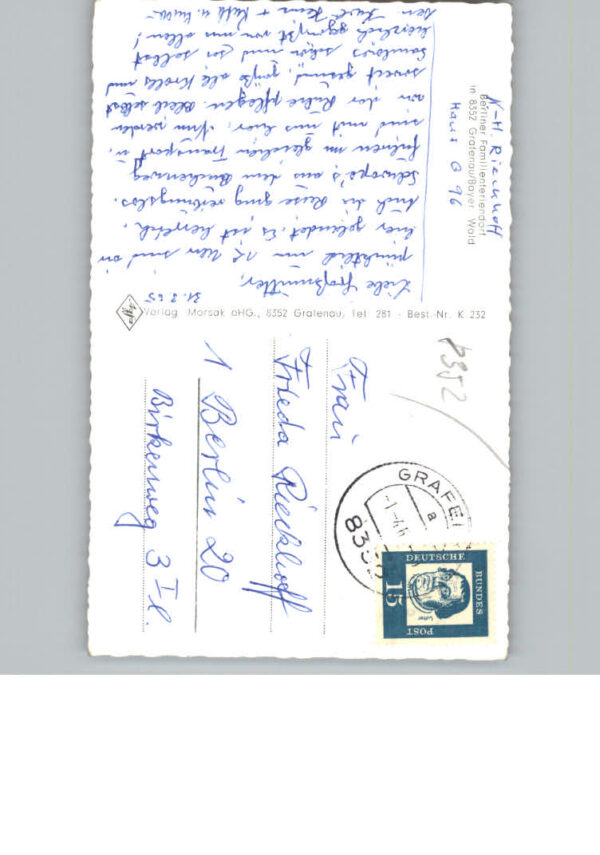 N-H. Rieckhoff
Berliner Familienferiendorf
in 8352 Grafenau/Bayer. Wald
Haus G 96
31.3.65
Liebe Großmutter,
pünktlich um 12 Uhr sind wir
hier gelandet. Es ist herrlich.
Auch die Reise ging reibungslos.
Schwopa's aus dem Buchenweg
fuhren im gleichen Transport u.
sind mit uns hier. Nun werden
wir der Ruhe pflegen. Bleib selbst
soweit gesund, grüße alle Krolls und
schön und sei selbst
herzlich gegrüßt von uns allen!
Verlag Morsak oHG., 8352 Grafenau, Tel. 281 - Best.-Nr. K 232
8352
Frau
Frieda Rieckhoff
1 Berlin 20
Birkenweg 3 I l.
GRAFEN
a
8352
DEUTSCHE
BUNDES
POST
15
Luther